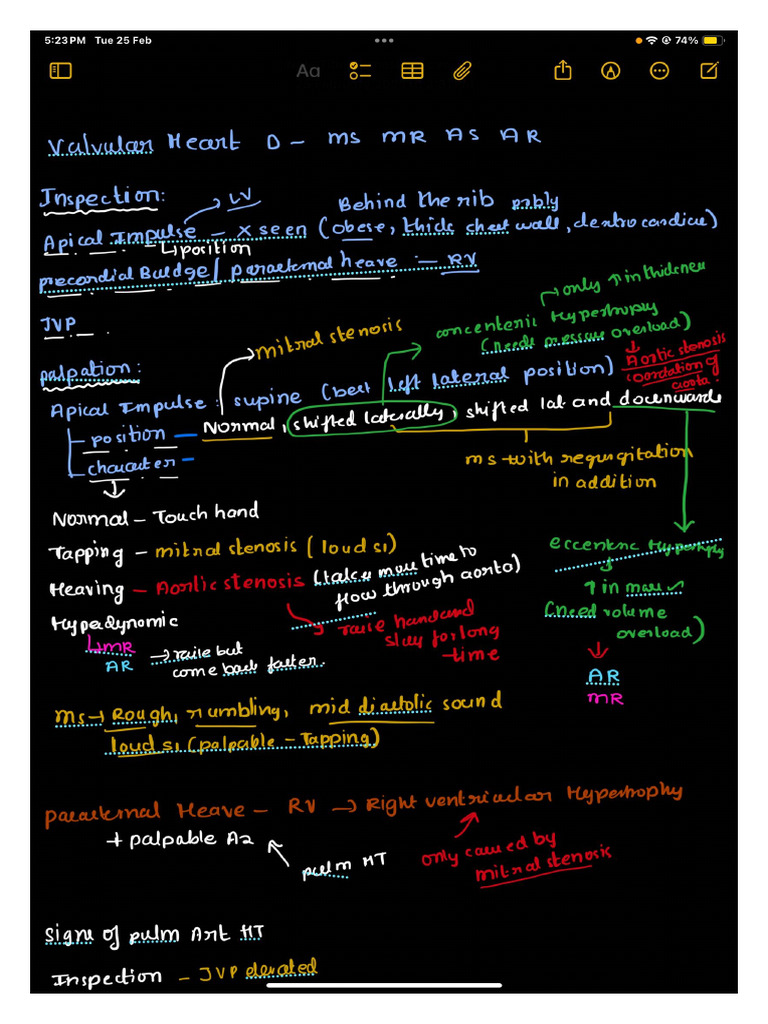 5:23 PM Tue 25 Feb
74%
Aa
Valvular Heart D - MS MR AS AR
Inspection:
LV
Behind the rib
Apical Impulse - x seen (obese, thick chest wall, dextrocardiac)
↳ position
precordial Buldge / parasternal heave :- RV
JVP
→ mitral stenosis
→ only ↑ in thickness
concenteric Hypertrophy
(needs pressure overload)
Aortic stenosis
coarctation of
aorta.
palpation:
Apical Impulse: supine (best left lateral position)
position - Normal, shifted laterally, shifted lat and downwards
character -
MS with regurgitation
in addition
Normal - Touch hand
Tapping - mitral stenosis (loud S1)
Heaving - Aortic stenosis (takes more time to
flow through aorta)
→ raise hand and
stay for long
time
Hyperdynamic
↳ MR
AR → raise but
come back faster.
eccentric Hypertrophy
↑ in mass
(need volume
overload)
AR
MR
MS → Rough, rumbling, mid diastolic sound
loud S1 (palpable - Tapping)
parasternal Heave - RV → Right ventricular Hypertrophy
+ palpable A2
pulm HT
only caused by
mitral stenosis
Signs of pulm Art HT
Inspection - JVP elevated